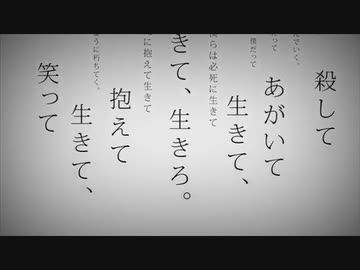 んでいく。
殺して
だって
あがいて
僕だって
生きて、
僕らは必死に生きて
きて、生きろ。
に抱えて生きて
抱えて
ように朽ちてく。
生きて、
笑って